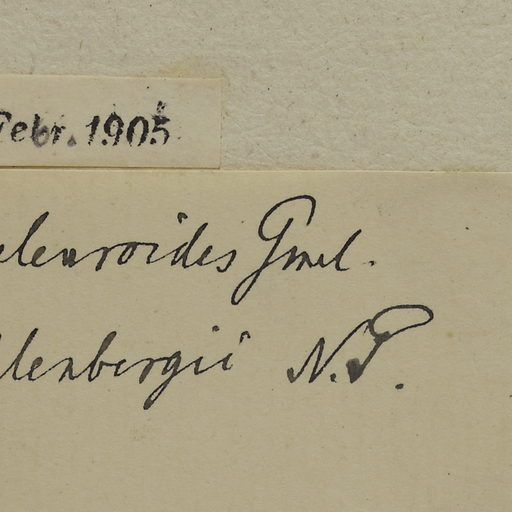 Febr. 1905
eleuroides Gmel.
hlenbergii N.P.